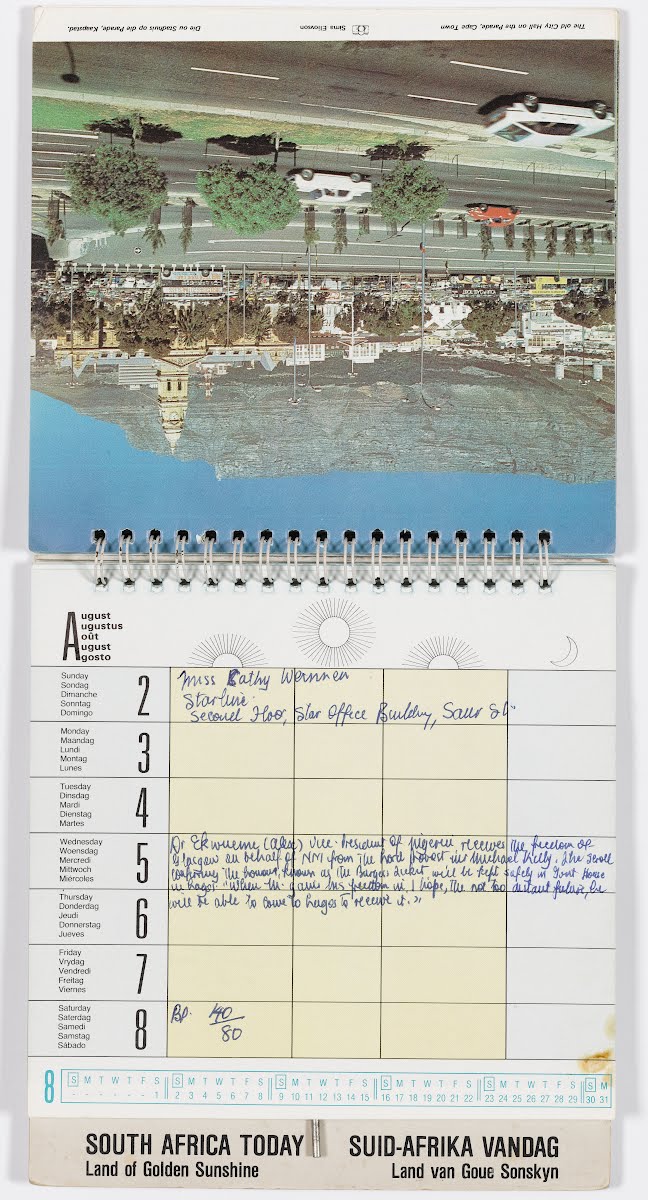 The old City Hall on the Parade, Cape Town
Sima Eliovson
Die ou Stadhuis op die Parade, Kaapstad.
August
Augustus
Août
August
Agosto
Sunday
Sondag
Dimanche
Sonntag
Domingo
2
Miss Cathy Wernnen
Starline.
Second Floor, Star Office Building, Sauer St.
Monday
Maandag
Lundi
Montag
Lunes
3
Tuesday
Dinsdag
Mardi
Dienstag
Martes
4
Wednesday
Woensdag
Mercredi
Mittwoch
Miércoles
5
Dr Ekwueme (Alex) Vice-President of Nigeria receives the freedom of
Glasgow on behalf of NM from the Lord Provost Mr Michael Kelly. The scroll
confirming the honour, known as the Burgess ticket, will be kept safely in Govt House
in Lagos "When he gains his freedom in, I hope, the not too distant future, he
will be able to come to Lagos to receive it."
Thursday
Donderdag
Jeudi
Donnerstag
Jueves
6
Friday
Vrydag
Vendredi
Freitag
Viernes
7
Saturday
Saterdag
Samedi
Samstag
Sábado
8
BP. 140/80
8
S M T W T F S S M T W T F S S M T W T F S S M T W T F S S M T W T F S S M
- - - - - - 1 2 3 4 5 6 7 8 9 10 11 12 13 14 15 16 17 18 19 20 21 22 23 24 25 26 27 28 29 30 31
SOUTH AFRICA TODAY
Land of Golden Sunshine
SUID-AFRIKA VANDAG
Land van Goue Sonskyn